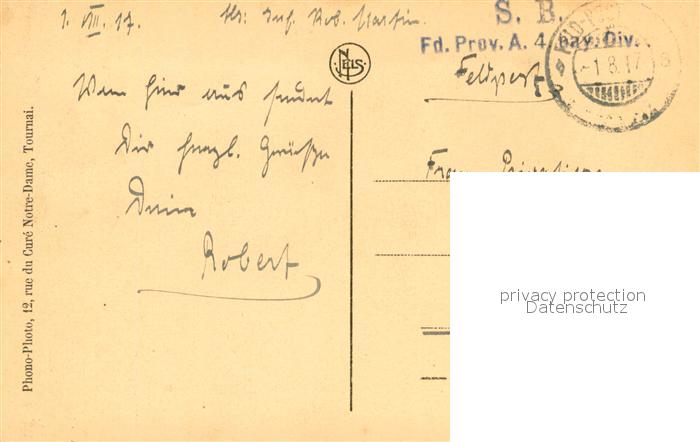 1. VIII. 17.
S. B.
Fd. Prov. A. 4. bay. Div.
Feldpost
-1.8.17
NELS
Von hier aus sendet
Dir herzl. Grüße
Dein
Robert
Frau
Phono-Photo, 12, rue du Curé Notre-Dame, Tournai.
privacy protection
Datenschutz